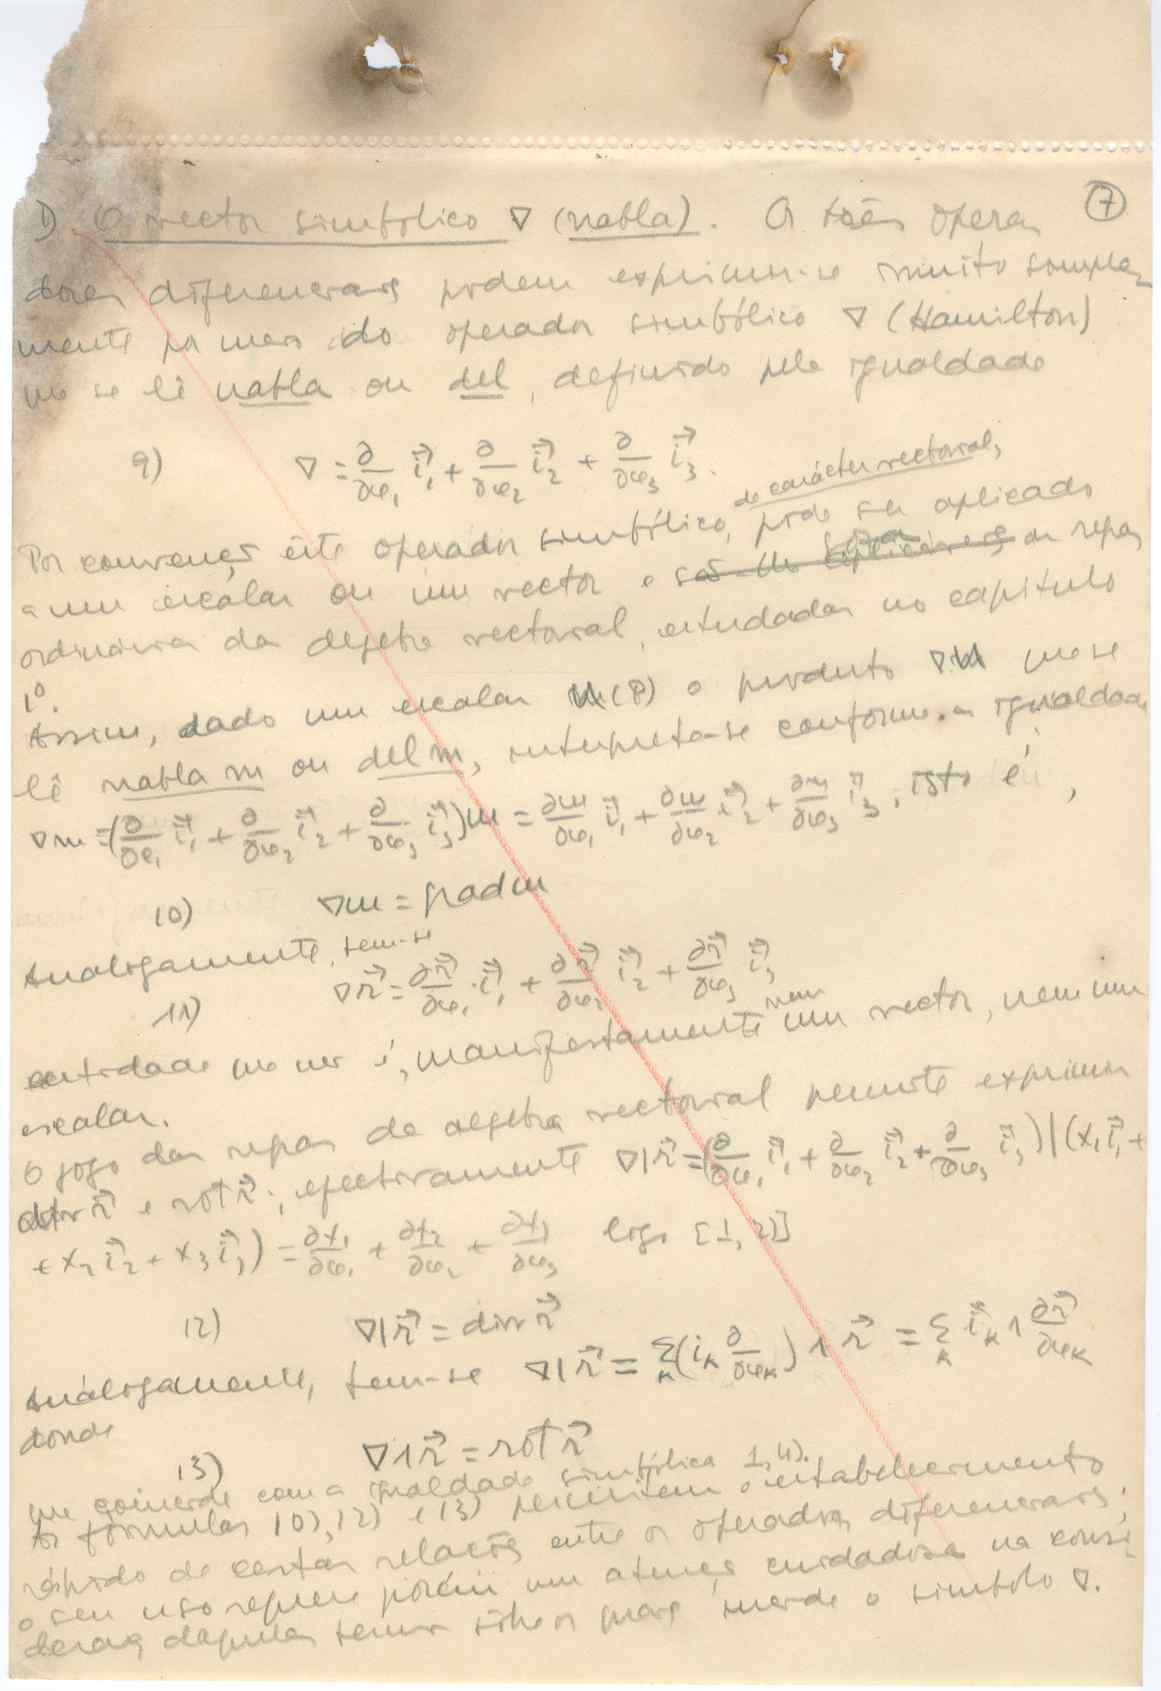 D) O vector simbólico ∇ (nabla). Os três opera 7
dores diferenciais podem exprimir-se muito simples
mente por meio do operador simbólico ∇ (Hamilton)
que se lê nabla ou del, definido pela igualdade
9) ∇ = ∂/∂φ₁ i⃗₁ + ∂/∂φ₂ i⃗₂ + ∂/∂φ₃ i⃗₃.
de carácter vectorial,
Por convenção êste operador simbólico, pode ser aplicado
a um escalar ou um vector e as regras
ordinárias da álgebra vectorial, estudadas no capítulo
1º.
Assim, dado um escalar m(P) o produto ∇m que se
lê nabla m ou del m, interpreta-se conforme a igualdade
∇m = (∂/∂φ₁ i⃗₁ + ∂/∂φ₂ i⃗₂ + ∂/∂φ₃ i⃗₃)m = ∂m/∂φ₁ i⃗₁ + ∂m/∂φ₂ i⃗₂ + ∂m/∂φ₃ i⃗₃, isto é,
10) ∇m = grad m
Analogamente, tem-se
11) ∇r⃗ = ∂r⃗/∂φ₁ i⃗₁ + ∂r⃗/∂φ₂ i⃗₂ + ∂r⃗/∂φ₃ i⃗₃
entidade que não é, manifestamente nem um vector, nem um
escalar.
O jogo das regras da álgebra vectorial permite exprimir
div r⃗ e rot r⃗; efectivamente ∇|r⃗ = (∂/∂φ₁ i⃗₁ + ∂/∂φ₂ i⃗₂ + ∂/∂φ₃ i⃗₃)|(x₁i⃗₁ +
+ x₂i⃗₂ + x₃i⃗₃) = ∂x₁/∂φ₁ + ∂x₂/∂φ₂ + ∂x₃/∂φ₃ logo [1, 2)]
12) ∇|r⃗ = div r⃗
Análogamente, tem-se ∇|r⃗ = Σₖ(iₖ ∂/∂φₖ) ∧ r⃗ = Σₖ i⃗ₖ ∧ ∂r⃗/∂φₖ
donde
13) ∇∧r⃗ = rot r⃗
que coincide com a igualdade simbólica 1, 4).
As fórmulas 10), 12) e 13) permitem o estabelecimento
rápido de certas relações entre os operadores diferenciais;
o seu uso requere porém uma atenção cuidadosa na consi
deração daqueles termos sôbre os quais incide o símbolo ∇.